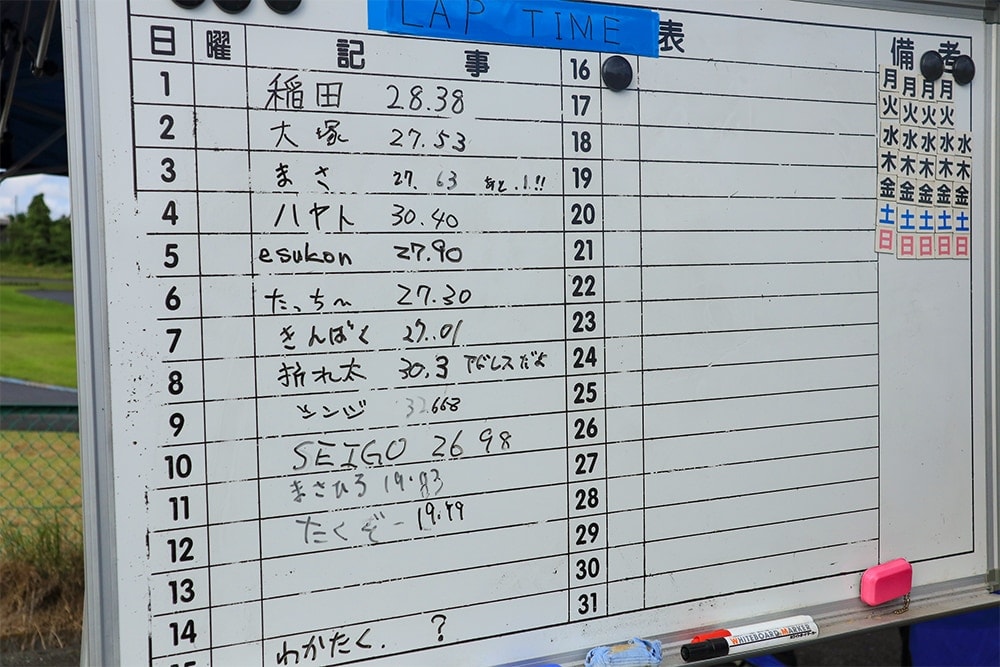 LAP TIME 表
日 曜 記 事 16 備考
1 稲田 28.38
2 大塚 27.53
3 まさ 27.63 あと.1!!
4 ハヤト 30.40
5 esukon 27.90
6 たっち〜 27.30
7 きんばく 27.01
8 折れ太 30.3 アドレスだよ
9 シンジ 32.668
10 SEIGO 26 98
11 まさひろ 19.83
12 たくぞー 19.79
13
14 わかたく. ?
17
18
19
20
21
22
23
24
25
26
27
28
29
30
31
月 月 月 月
火 火 火 火
水 水 水 水 水
木 木 木 木 木
金 金 金 金 金
土 土 土 土 土
日 日 日 日 日
WHITEBOARD MARKER